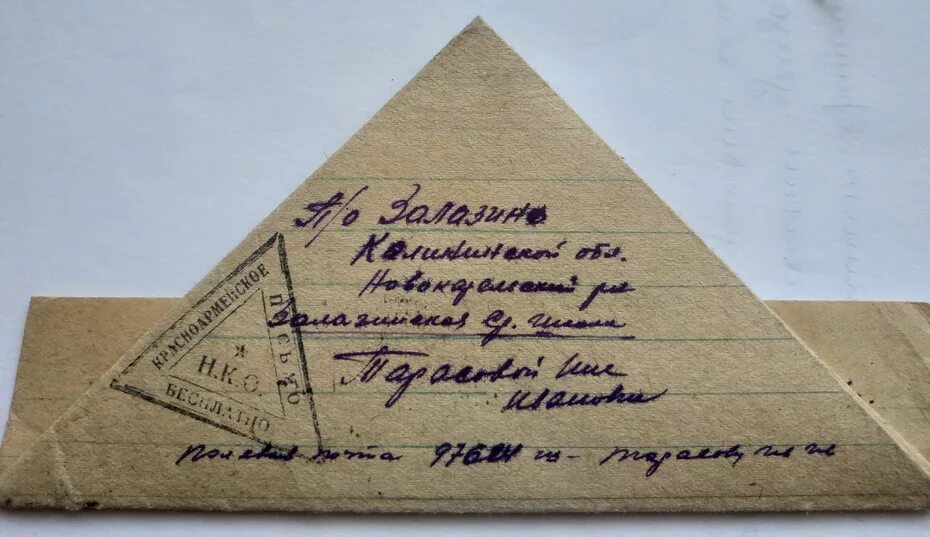 П/о Залазино
Калининской обл.
Новокаремский р-н
Залазинская ср. школа
Тарасовой
Ивановне
Полевая почта
КРАСНОАРМЕЙСКОЕ
ПИСЬМО
БЕСПЛАТНО
Н.К.О.